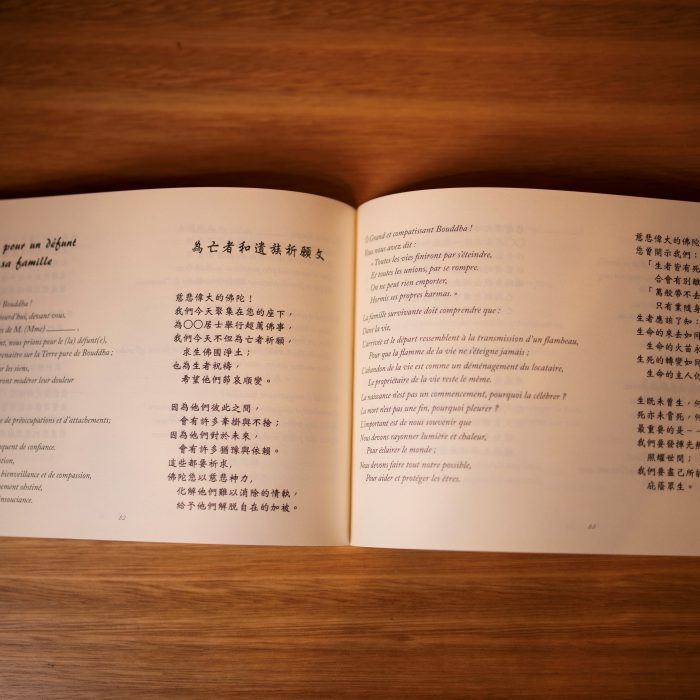 pour un défunt
sa famille
Bouddha !
aujourd'hui, devant vous,
es de M. (Mme)
ur, nous prions pour le (la) défunt(e),
renaître sur la Terre pure de Bouddha ;
er les siens,
ront modérer leur douleur
e préoccupations et d'attachements;
quent de confiance.
ation,
bienveillance et de compassion,
ement obstiné,
insouciance.
為亡者和遺族祈願文
慈悲偉大的佛陀!
我們今天聚集在您的座下,
為○○居士舉行超薦佛事,
我們今天不但為亡者祈願,
求生佛國淨土;
也為生者祝禱,
希望他們節哀順變。
因為他們彼此之間,
會有許多牽掛與不捨;
因為他們對於未來,
會有許多猶豫與依賴。
這些都要祈求,
佛陀您以慈悲神力,
化解他們難以消除的情執,
給予他們解脫自在的加被。
82
Ô Grand et compatissant Bouddha !
Vous nous avez dit :
« Toutes les vies finiront par s'éteindre,
Et toutes les unions, par se rompre.
On ne peut rien emporter,
Hormis ses propres karmas. »
La famille survivante doit comprendre que :
Dans la vie,
L'arrivée et le départ ressemblent à la transmission d'un flambeau,
Pour que la flamme de la vie ne s'éteigne jamais ;
L'abandon de la vie est comme un déménagement du locataire,
Le propriétaire de la vie reste le même.
La naissance n'est pas un commencement, pourquoi la célébrer ?
La mort n'est pas une fin, pourquoi pleurer ?
L'important est de nous souvenir que
Nous devons rayonner lumière et chaleur,
Pour éclairer le monde ;
Nous devons faire tout notre possible,
Pour aider et protéger les êtres.
慈悲偉大的佛陀
您曾開示我們:
「生者皆有死
合會有別離
「萬般帶不去
只有業隨身
生者應該了知:
生命的來去如同
生命的火苗永
生死的轉變如同
生命的主人仍
生既未曾生,何
死亦未嘗死,何
最重要的是一
我們要發揮光熱
照耀世間;
我們要盡己所能
庇蔭眾生。
83